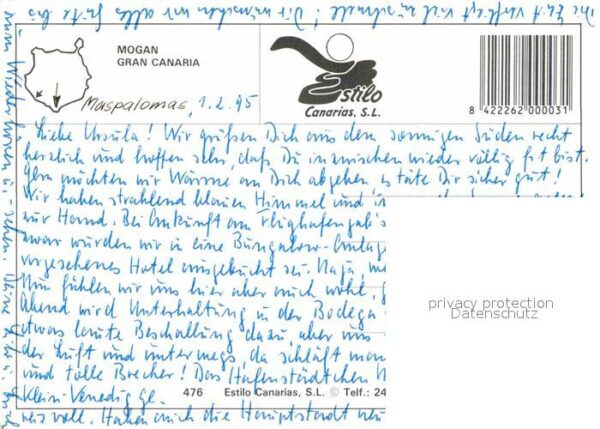 die Zeit verfliegt viel zu schnell! Dir wünschen wir alles Gute bis
MOGAN
GRAN CANARIA
Estilo
Canarias, S.L.
8 422262 000031
Maspalomas, 1.2.95
Liebe Ursula! Wir grüßen Dich aus dem sonnigen Süden recht
herzlich und hoffen sehr, daß Du inzwischen wieder völlig fit bist.
Gern möchten wir Wärme an Dich abgeben, es täte Dir sicher gut!
Wir haben strahlend blauen Himmel und
zur Hand. Bei Ankunft am Flughafen gab's
zwar wurden wir in eine Bungalow-Anlage
vorgesehenes Hotel ausgebucht sei. Naja,
Nun fühlen wir uns hier aber auch wohl,
Abend wird Unterhaltung in der Bodega
etwas laute Beschallung dazu, aber uns
der Luft und unterwegs, da schläft man
und tolle Brecher! Das Hafenstädtchen
Klein-Venedig ge.
reizvoll. Haben auch die Hauptstadt
476 Estilo Canarias, S.L. © Telf.: 24
privacy protection
Datenschutz
zum Wiederhören u. -sehen. Deine